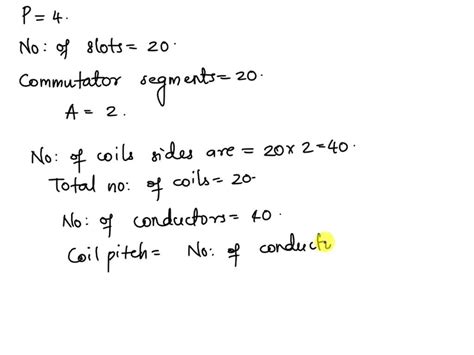 P = 4.
No: of slots = 20.
Commutator segments = 20.
A = 2.
No: of coils sides are = 20 x 2 = 40.
Total no: of coils = 20.
No: of conductors = 40.
Coil pitch = No: of conduct